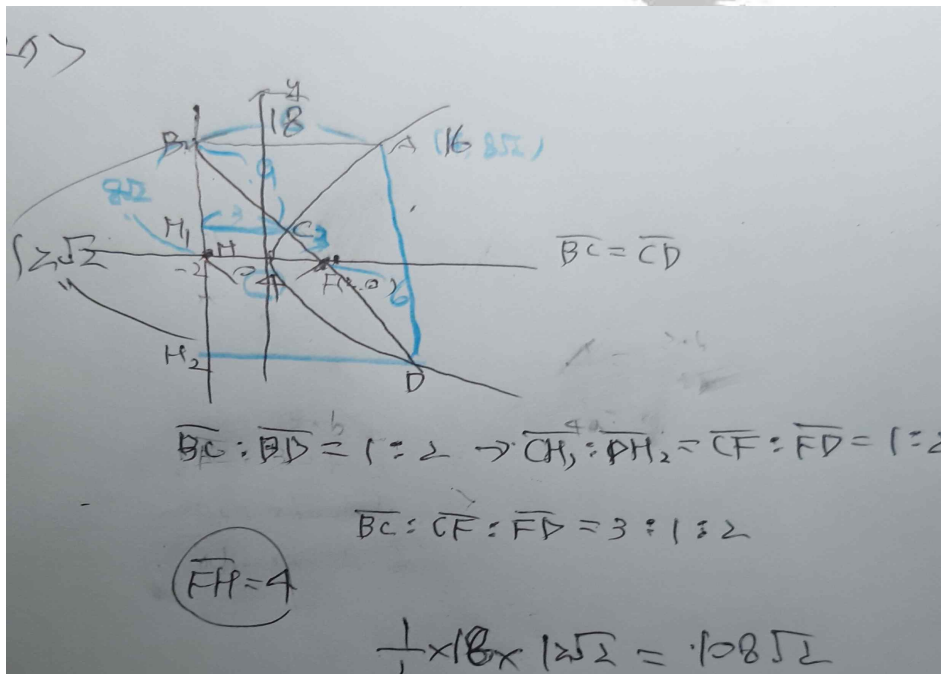 y
18
B
A (16, 8√2)
9
8√2
3
H₁
C
3
12√2
H
-2
F(2,0)
BC = CD
4
6
H₂
D
BC : BD = 1 : 2 → CH₁ : DH₂ = CF : FD = 1 : 2
BC : CF : FD = 3 : 1 : 2
FH = 4
×18× 12√2 = 108√2